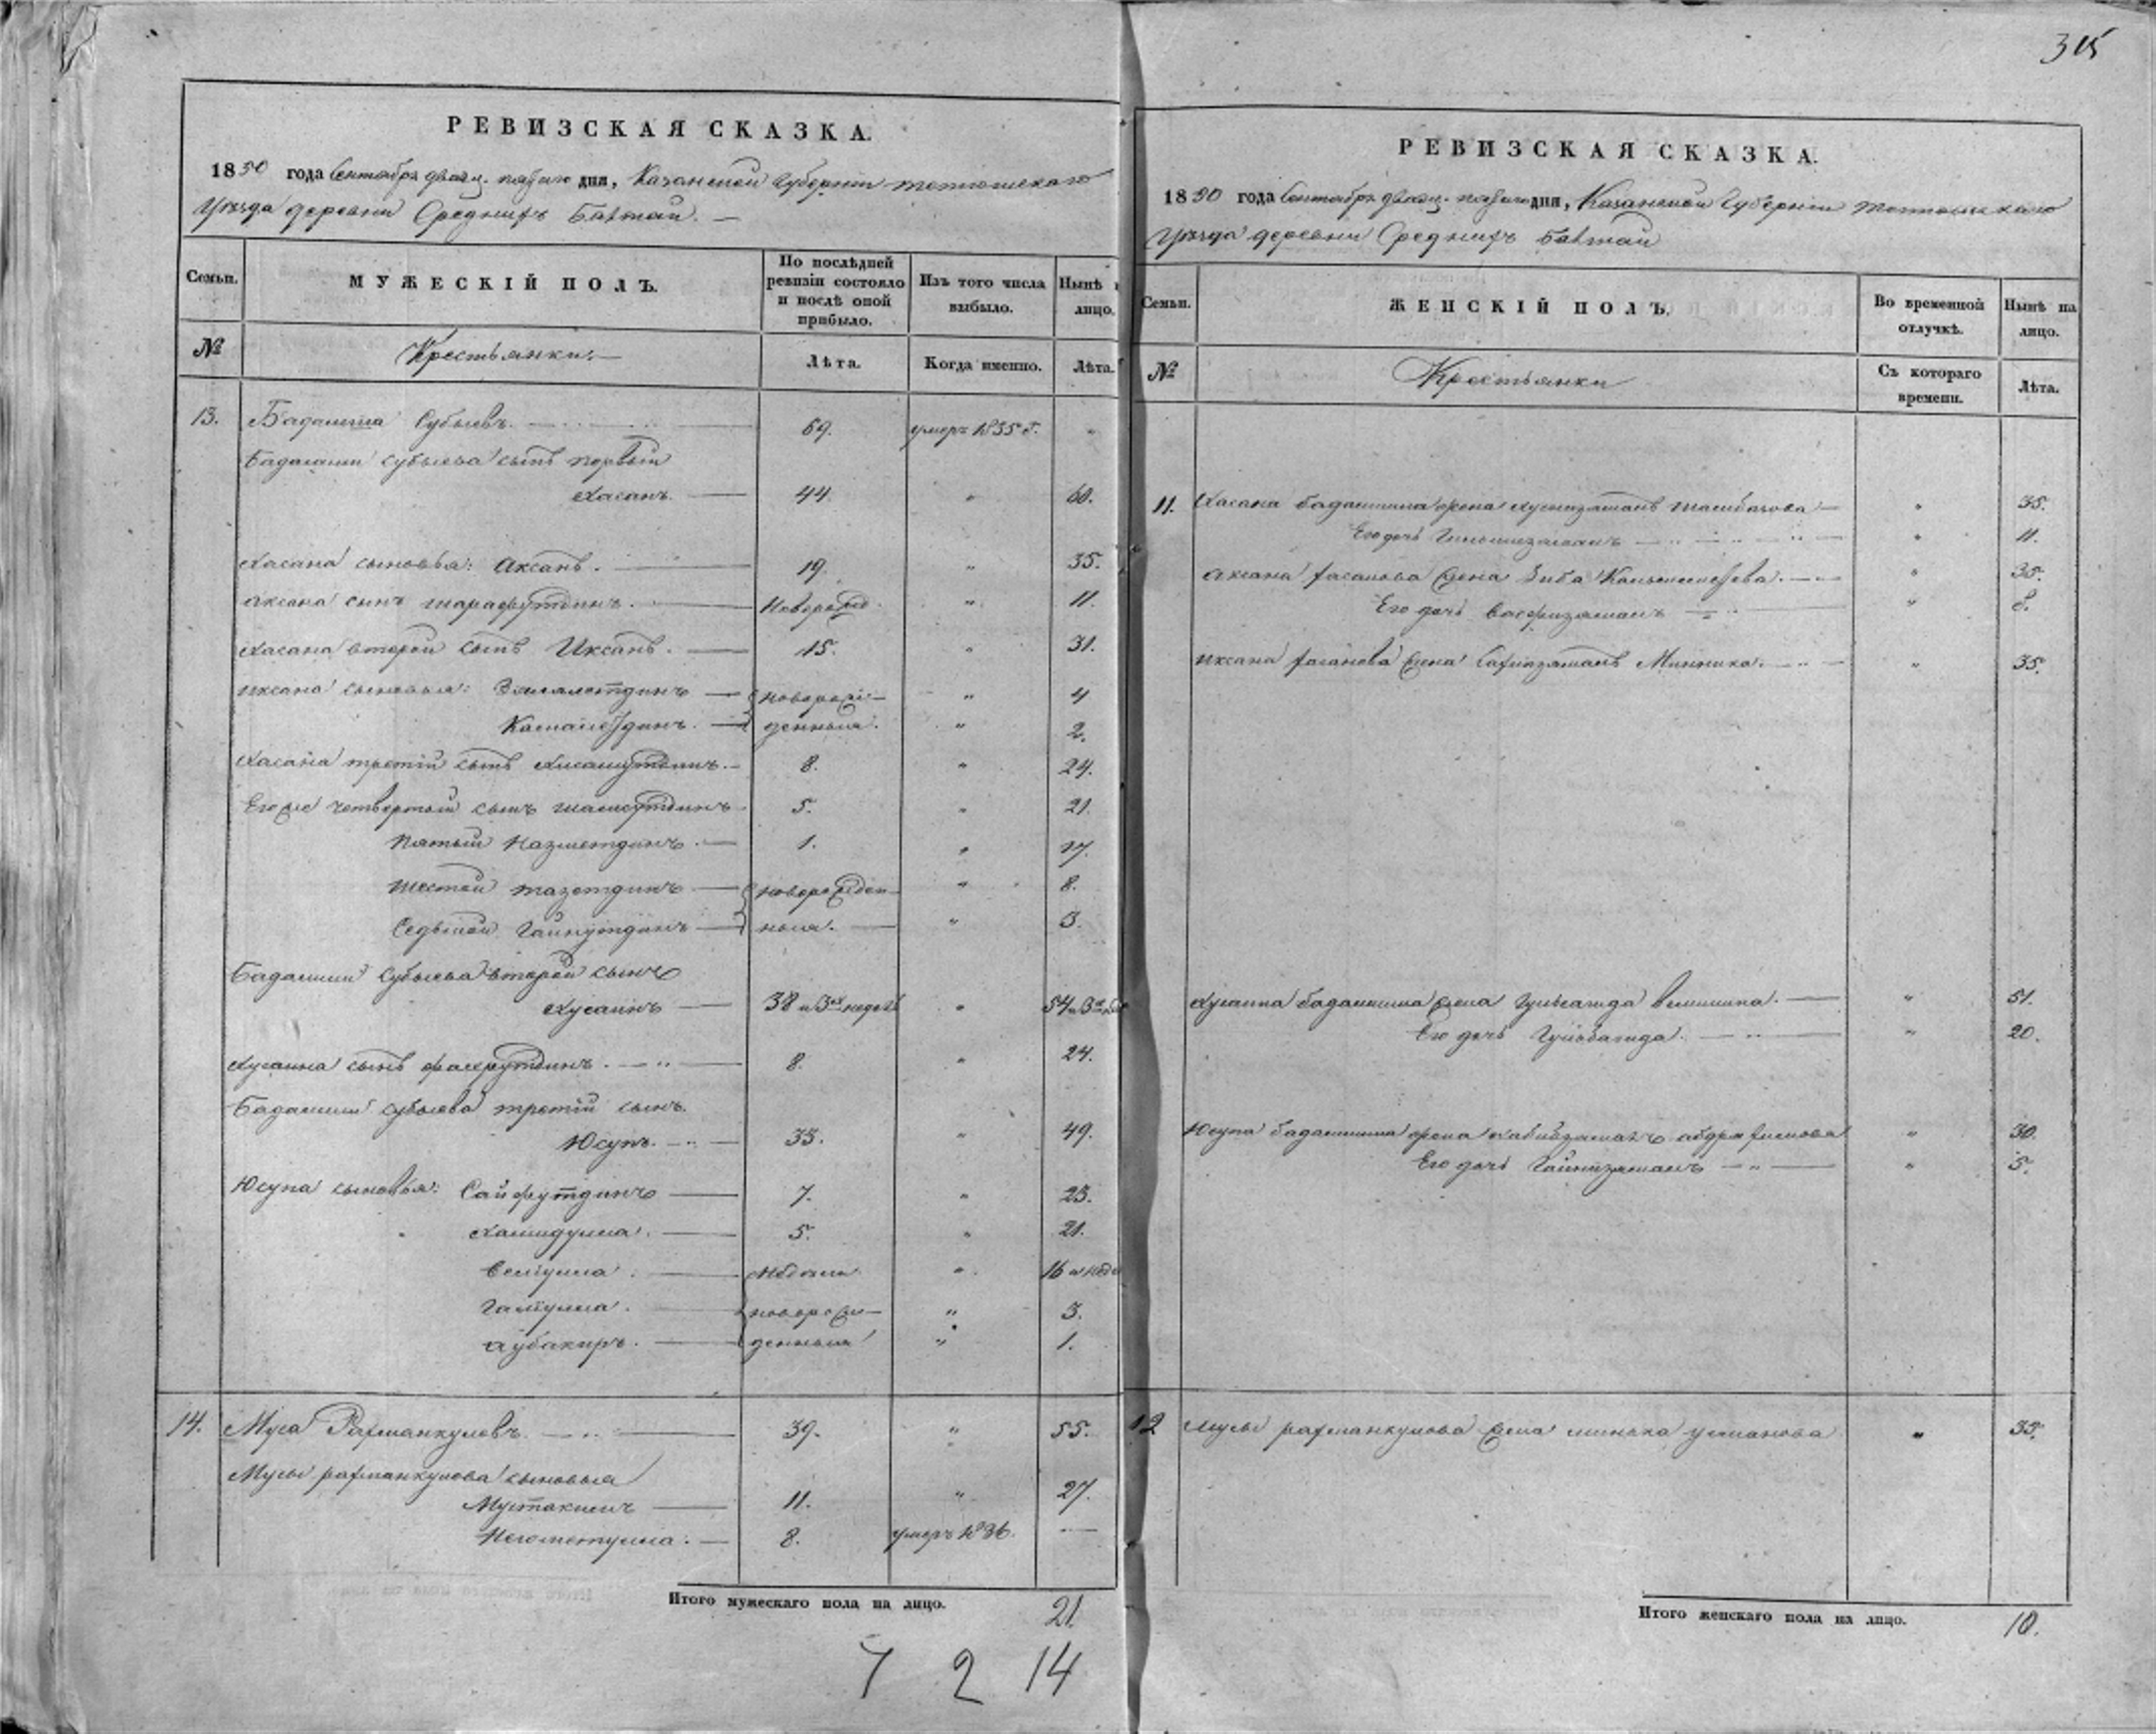 315
РЕВИЗСКАЯ СКАЗКА.
1850 года Сентября двадц. пятаго дня, Казанской Губерніи Тетюшскаго
Уѣзда деревни Среднихъ Балтай. —
Семьи. МУЖЕСКІЙ ПОЛЪ. По послѣдней ревизіи состояло и послѣ оной прибыло. Изъ того числа выбыло. Нынѣ лицо.
№ Крестьянки. Лѣта. Когда именно. Лѣта.
13. Бадамша Субыевъ. 69. умеръ 1835 г. „
Бадамши Субыева сынъ первый
Хасанъ 44 „ 60.
Хасана сыновья: Аксанъ. 19. „ 35.
Аксана сынъ Шарафутдинъ. Новорожд. „ 11.
Хасана второй сынъ Иксанъ. 15. „ 31.
Иксана сыновья: новорож- „ 4
Камалетдинъ. денныя. „ 2.
Хасана третій сынъ Хисамутдинъ. 8. „ 24.
Его же четвертый сынъ Шамсутдинъ 5. „ 21.
Пятый Назметдинъ. 1. „ 17.
Шестой Тазетдинъ новорожден- „ 8.
Седьмой Гайнутдинъ ныя. „ 3.
Бадамши Субыева второй сынъ
Хусаинъ 38 и 3хъ недѣль „ 54 и 3хъ
Хусаина сынъ Фахрутдинъ. 8. „ 24.
Бадамши Субыева третій сынъ
Юсупъ. 33. „ 49.
Юсупа сыновья: Сайфутдинъ 7. „ 23.
Хамидулла. 5. „ 21.
Велиулла. недѣли „ 16 и неде
Галиулла. новорож- „ 3.
Аубакиръ. денныя „ 1.
14. Муса Рахманкуловъ. 39. „ 55.
Мусы Рахманкулова сыновья
Мустакимъ 11. „ 27.
Негометулла. 8. умеръ 1836. —
Итого мужескаго пола на лицо. 21.
7 2 14
РЕВИЗСКАЯ СКАЗКА.
1850 года Сентября двадц. пятаго дня, Казанской Губерніи Тетюшскаго
Уѣзда деревни Среднихъ Балтай
Семьи. ЖЕНСКІЙ ПОЛЪ. Во временной отлучкѣ. Нынѣ на лицо.
№ Крестьянки Съ котораго времени. Лѣта.
11. Хасана Бадамшина жена 35.
Его дочь „ 11.
Аксана Хасанова жена Зиба „ 35.
Его дочь Васфизямалъ „ 8.
Иксана Хасанова жена „ 35.
Хусаина Бадамшина жена Гульсагида Велишина. „ 51.
Его дочь Гульбагида. „ 20.
Юсупа Бадамшина жена Хабибзямалъ Абдряхимова „ 30.
Его дочь Гайнизямалъ „ 5.
12 Мусы Рахманкулова жена Усманова „ 35.
Итого женскаго пола на лицо. 10.